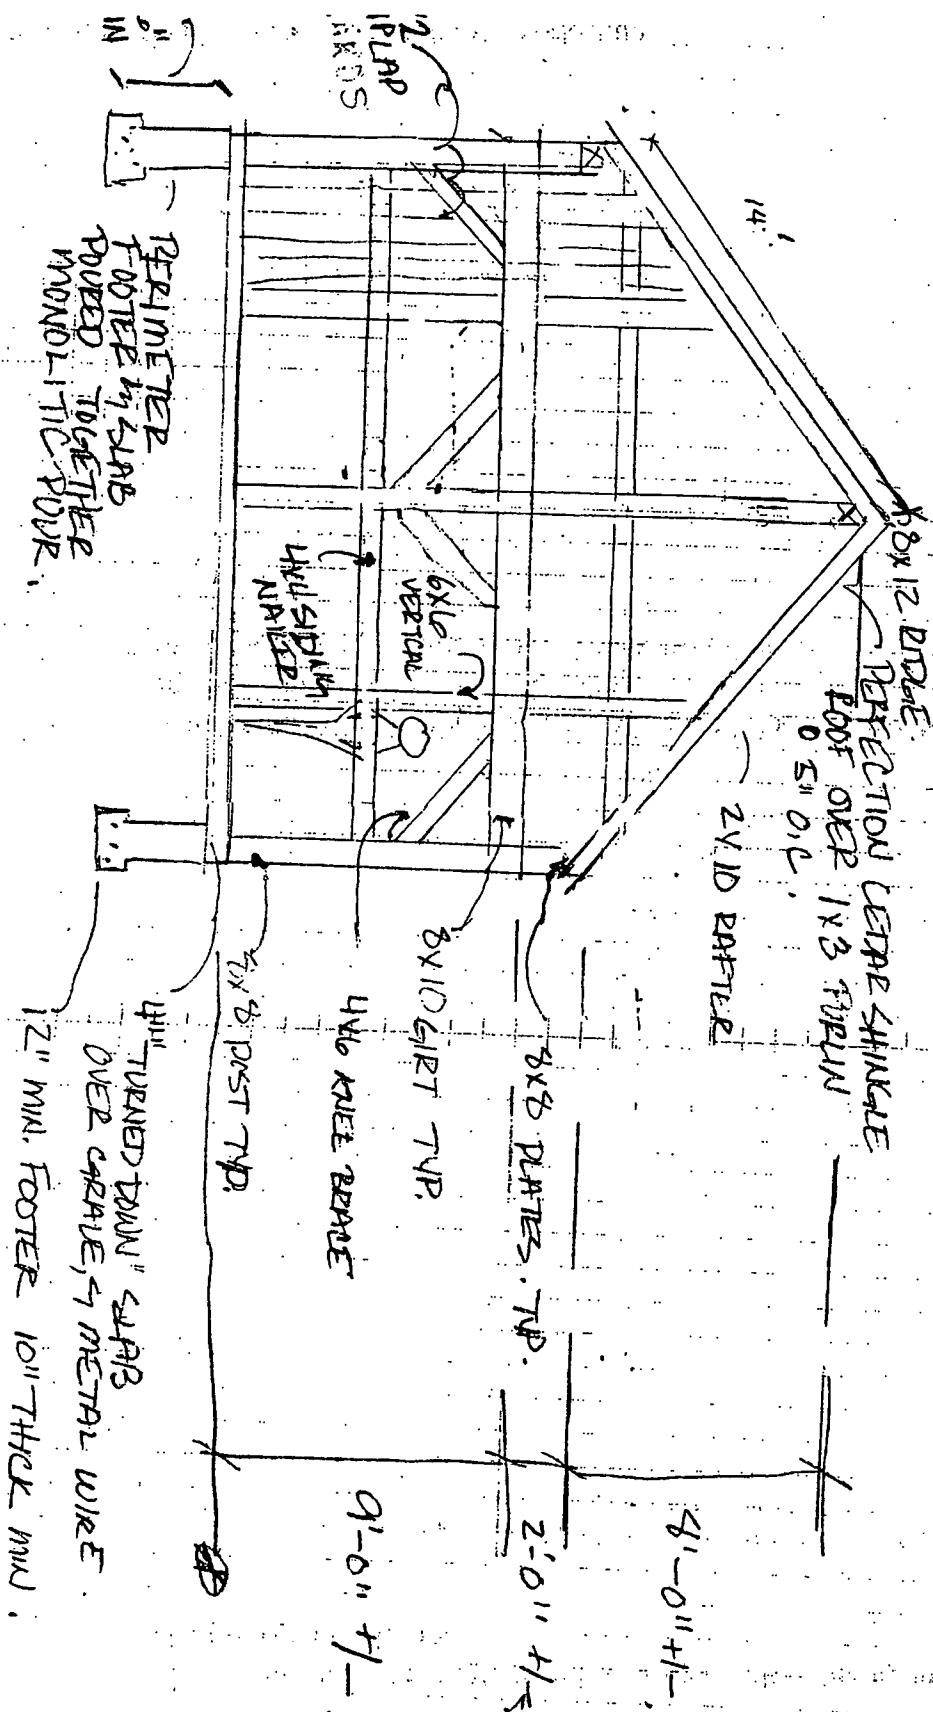 14'
8x12 RIDGE.
PERFECTION CEDAR SHINGLE
ROOF OVER 1x3 PURLIN
@ 5" O.C.
2x10 RAFTER
8x8 PLATES. TYP.
8x10 GIRT TYP.
4x6 KNEE BRACE
8 POST TYP.
4" "TURNED DOWN" SLAB
OVER GRAVEL, METAL WIRE.
12" MIN. FOOTER 10" THICK MIN.
6x6
VERTICAL
4x4 SIDING
NAILER
PERIMETER
FOOTER w/ SLAB
POURED TOGETHER
MONOLITIC POUR.
8'-0" +/-
2'-0" +/-
9'-0" +/-